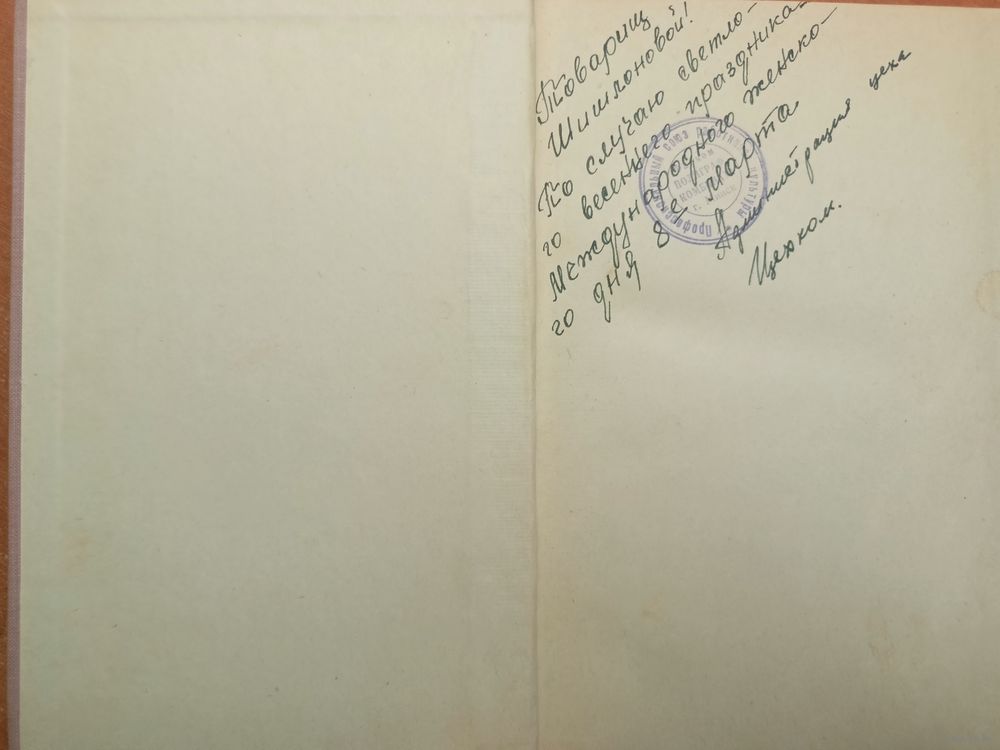 Товарищ
Шишлоновой!
По случаю светло-
го весеннего праздника-
Международного женско-
го дня 8е марта
Администрация цеха
Цехком.
Профессиональный союз работников культуры